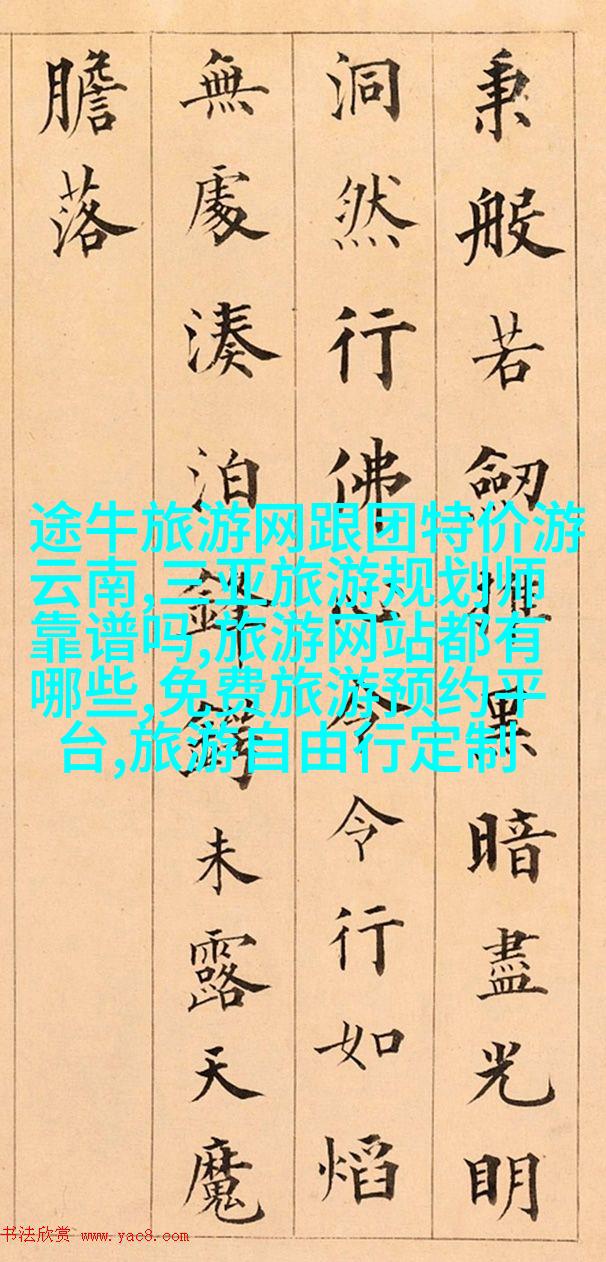 秉般若劒黑暗盡光明
洞然行佛心令令行如焰
無處湊泊鋒鍔未露天魔
膽落
途牛旅游网跟团特价游
云南,三亚旅游规划师
靠谱吗,旅游网站都有
哪些,免费旅游预约平
台,旅游自由行定制
书法欣赏 www.yac8.com